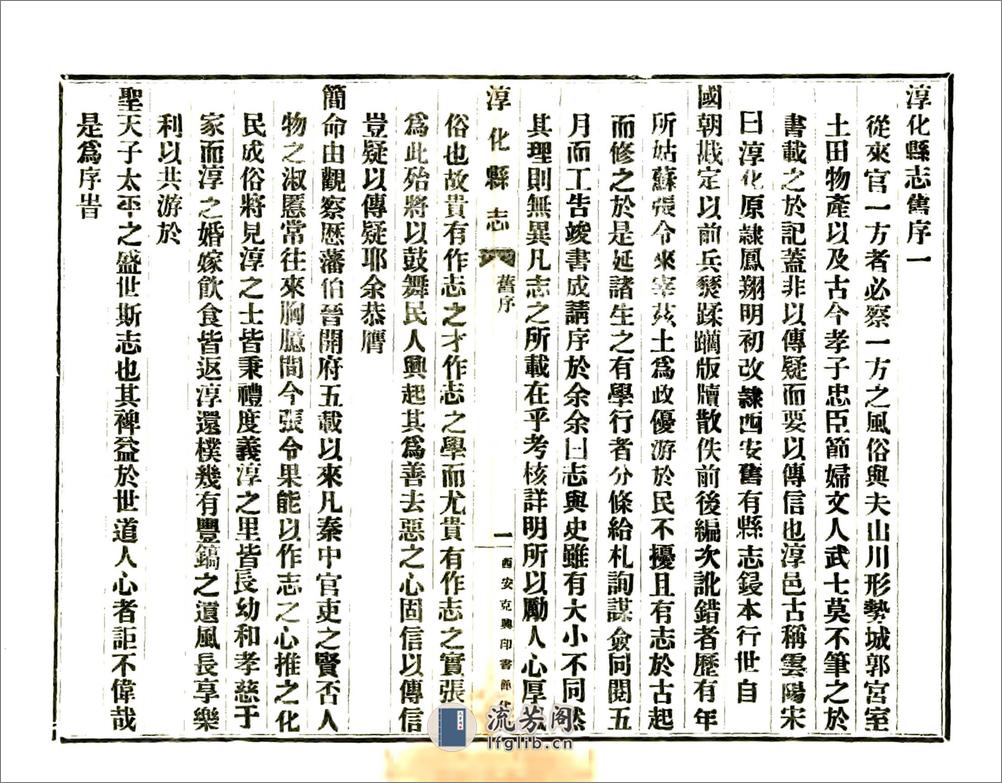 淳化縣志舊序一
從來官一方者必察一方之風俗與夫山川形勢城郭宮室
土田物產以及古今孝子忠臣節婦文人武士莫不筆之於
書載之於記蓋非以傳疑而要以傳信也淳邑古稱雲陽宋
曰淳化原隸鳳翔明初改隷西安舊有縣志鋟本行世自
國朝戡定以前兵燹蹂躪版牘散佚前後編次訛錯者歷有年
所姑蘇張令來宰茲土爲政優游於民不擾且有志於古起
而修之於是延諸生之有學行者分條給札詢謀僉同閱五
月而工告竣書成請序於余余曰志與史雖有大小不同然
其理則無異凡志之所載在乎考核詳明所以勵人心厚風
淳化縣志
舊序
一
西安克興印書館
俗也故貴有作志之才作志之學而尤貴有作志之實張
為此殆將以鼓舞民人興起其爲善去惡之心固信以傳信
豈疑以傳疑耶余恭膺
簡命由觀察歷藩伯晉開府五載以來凡秦中官吏之賢否人
物之淑慝常往來胸臆間今張令果能以作志之心推之化
民成俗將見淳之士皆秉禮度義淳之里皆長幼和孝慈于
家而淳之婚嫁飲食皆返淳還樸幾有豐鎬之遺風長享樂
利以共游於
聖天子太平之盛世斯志也其裨益於世道人心者詎不偉哉
是爲序旹
流芳阁
lfglib.cn